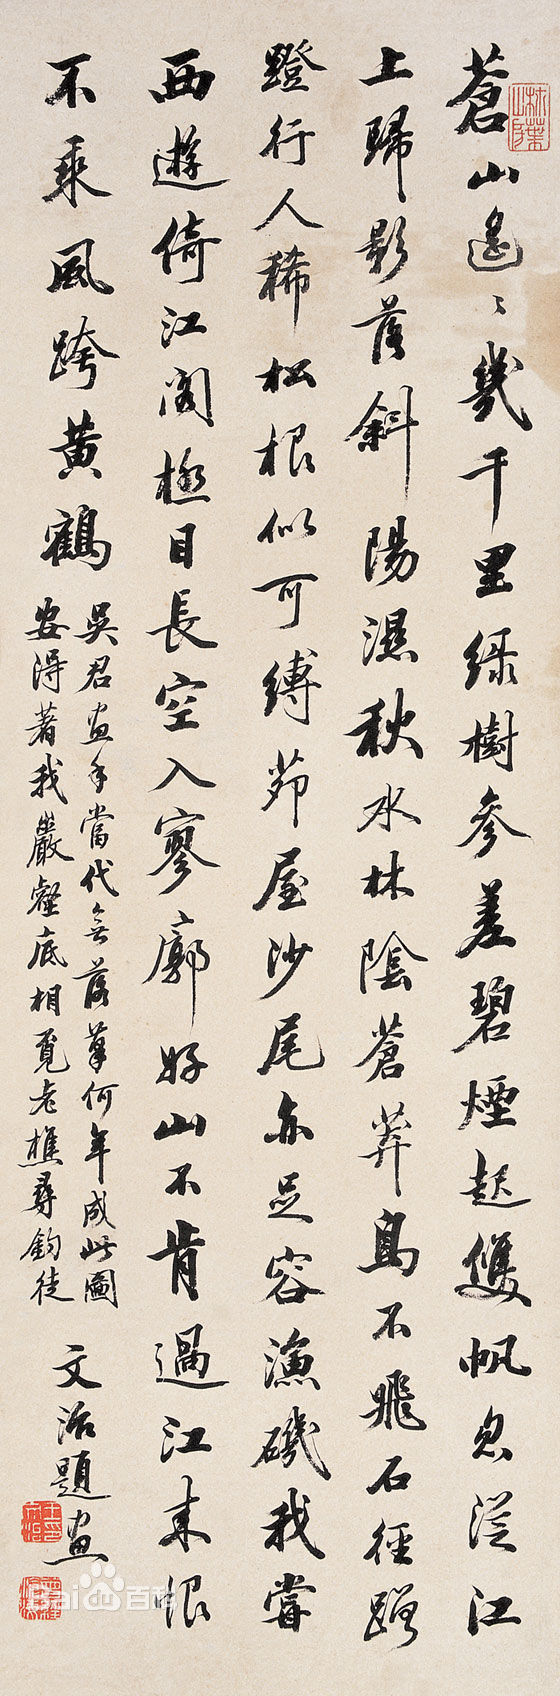 蒼山遙〻幾千里綠樹參差碧煙起雙帆忽從江
上歸影落斜陽濕秋水林陰蒼莽鳥不飛石徑蹭
蹬行人稀松根似可縛茆屋沙尾亦足容漁磯我嘗
西遊倚江閣極目長空入寥廓好山不肯過江來恨
不乘風跨黃鶴
吳君畫手當代無落筆何年成此圖
安得著我巖壑底相覓老樵尋釣徒
文治題畫
Bai百科